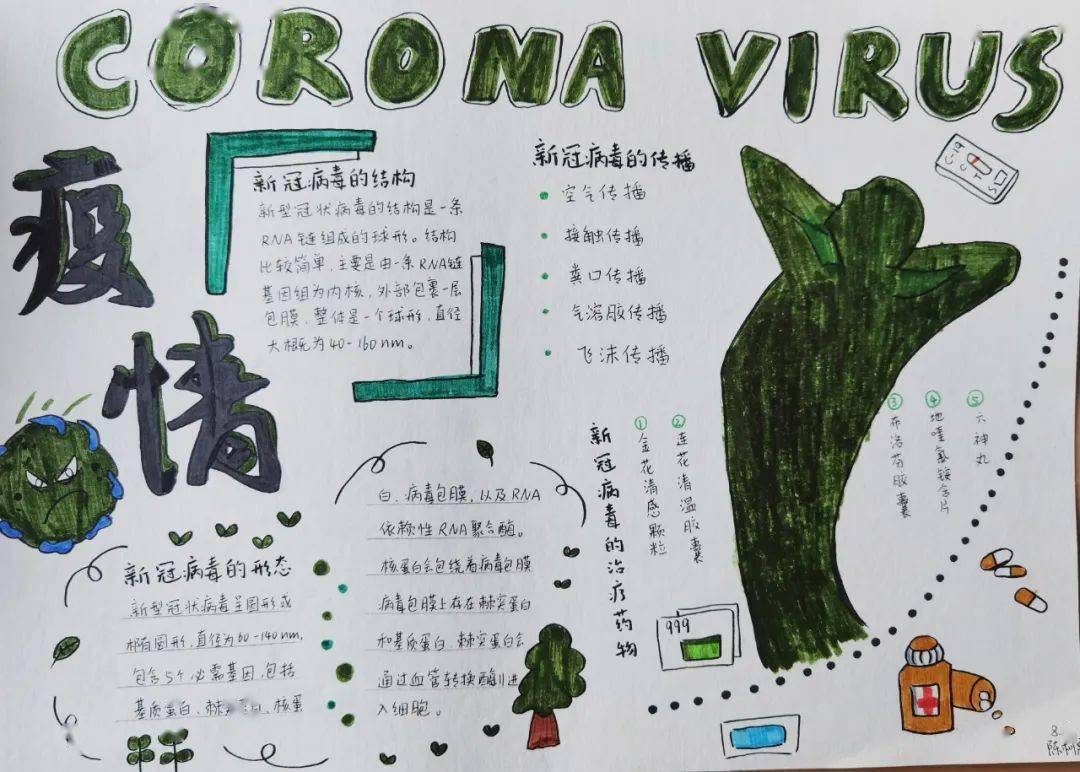 CORONA VIRUS
疫情
新冠病毒的结构
新型冠状病毒的结构是一条
RNA链组成的球形。结构
比较简单,主要是由一条RNA链
基因组为内核,外部包裹一层
包膜,整体是一个球形,直径
大概为40-160nm。
新冠病毒的传播
空气传播
接触传播
粪口传播
气溶胶传播
飞沫传播
新冠病毒的治疗药物
①金花清感颗粒
②连花清温胶囊
③布洛芬胶囊
④地喹氯铵含片
⑤六神丸
新冠病毒的形态
新型冠状病毒呈圆形或
椭圆形,直径为60-140nm,
包含5个必需基因,包括
基质蛋白、棘 白、核蛋
白、病毒包膜,以及RNA
依赖性RNA聚合酶。
核蛋白会包绕着病毒包膜
病毒包膜上存在棘突蛋白
和基质蛋白,棘突蛋白会
通过血管转换酶Ⅱ进
入细胞。
999
C
T
S
8.
陈